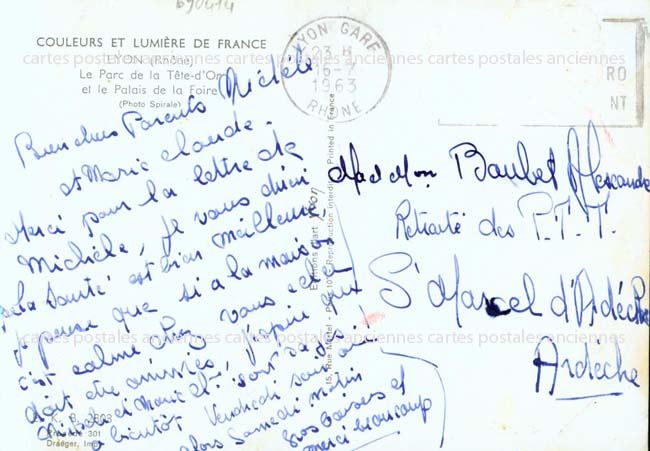 690414
COULEURS ET LUMIÈRE DE FRANCE
LYON (Rhône)
Le Parc de la Tête-d'Or
et le Palais de la Foire
(Photo Spirale)
LYON GARE
23 H
16-4
1963
RHÔNE
RO
NT
cartes postales anciennes cartes postales anciennes cartes postales anciennes
Bien chers Parents Michèle
et Marie Claude.
Merci pour la lettre de
Michèle, je vous dirai
la Santé est bien meilleure,
je pense que si a la maison
c'est calme chez vous cela
doit être
Michèle et Marie Cl. sont
a bientôt Vendredi soir ou
alors Samedi matin
Gros baisers et
merci beaucoup
Mad et Mon Baubet Alexandre
Retraité des P.T.T.
St Marcel d'Ardèche
Ardèche
Editions d'art yvon
15, Rue Martel - Paris 10e Reproduction interdite Printed in France
cartes postales anciennes cartes postales anciennes cartes postales anciennes
301
Draeger, Imp.